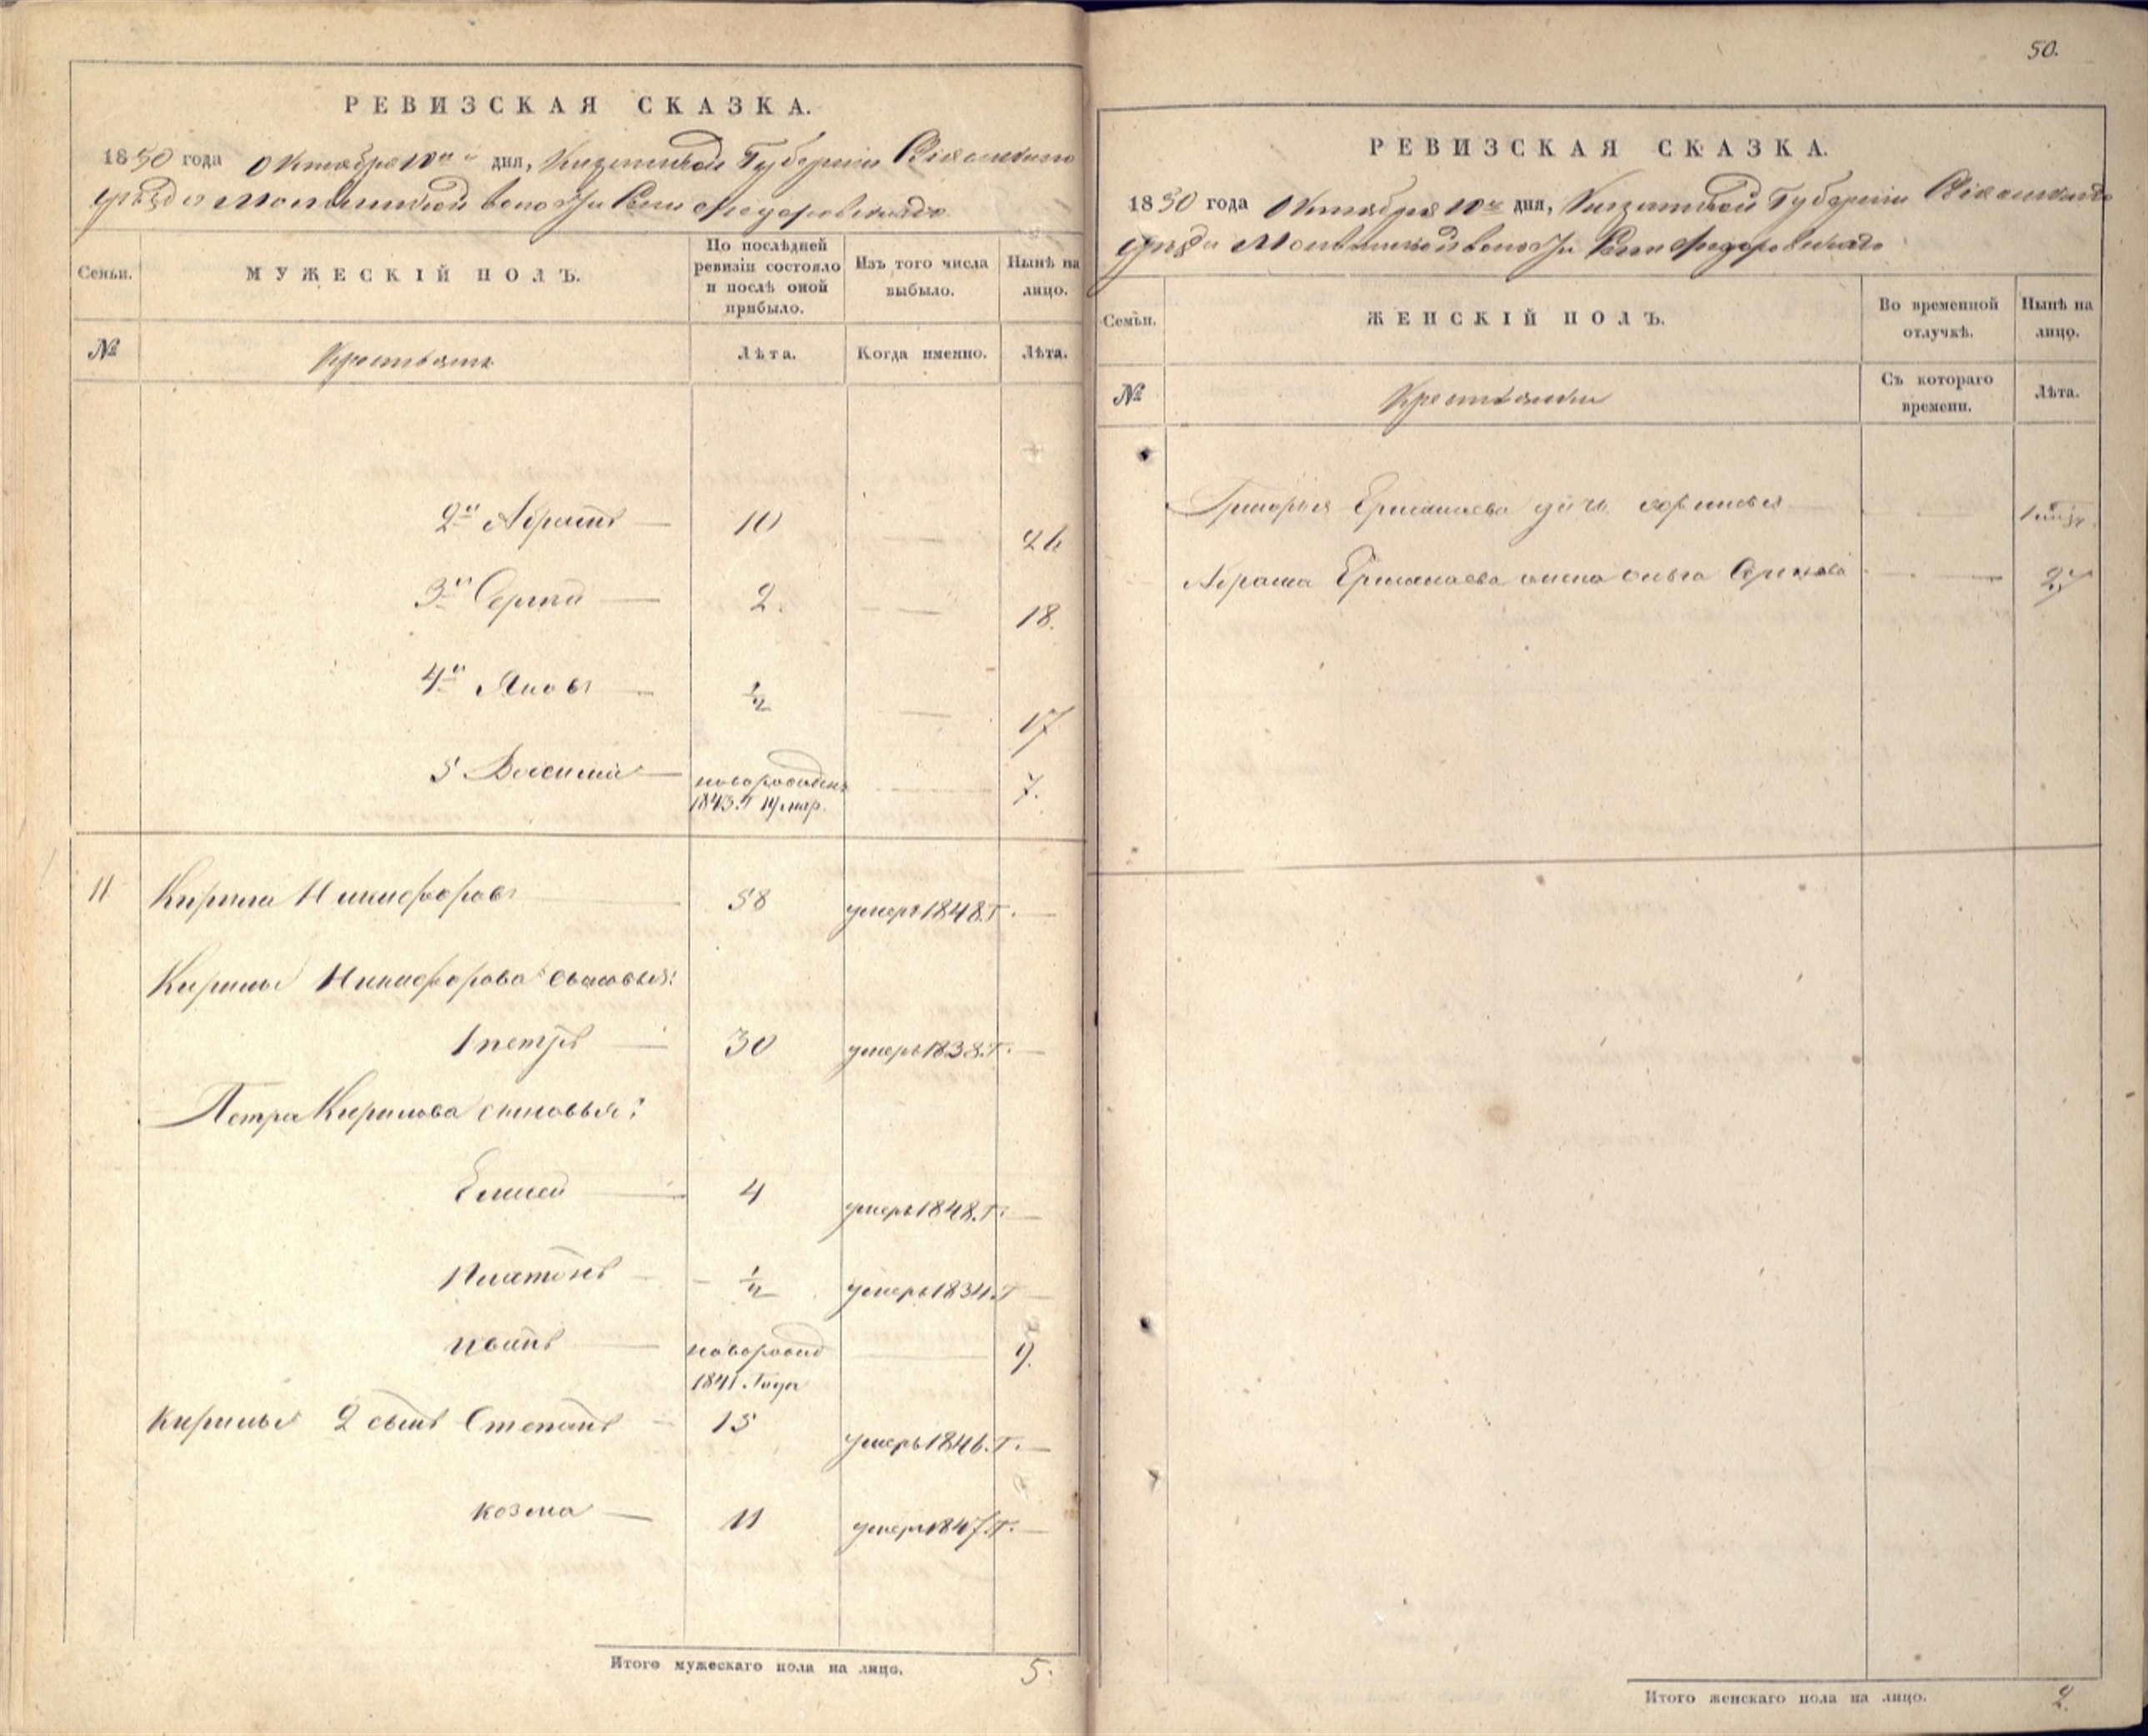 РЕВИЗСКАЯ СКАЗКА.
1850 года Октября 10го дня, Губернiи
уѣзда волости
Семьи. МУЖЕСКIЙ ПОЛЪ. По послѣдней ревизiи состояло и послѣ оной прибыло. Изъ того числа выбыло. Нынѣ на лицо.
№ Крестьяне Лѣта. Когда именно. Лѣта.
2й Абрамъ 10 26
3й Сергѣй 2. 18.
4й Яковъ ½ 17
5 Василiй новорожденъ 7.
1843.г 19 мар.
11 Кирила Никифоровъ 58 умеръ 1848.г.
Кирилы Никифорова сыновья:
1 петръ 30 умеръ 1838.г.
Петра Кирилова сыновья:
Елисей 4 умеръ 1848.г.
Платонъ ½ умеръ 1834.г
иванъ новорожд 9.
1841. года
Кирилы 2 сынъ Степанъ 15 умеръ 1846.г.
козма 11 умеръ 1847.г.
Итого мужескаго пола на лицо. 5.
50.
РЕВИЗСКАЯ СКАЗКА.
1850 года Октября 10го дня, Губернiи
уѣзда волости
Семьи. ЖЕНСКIЙ ПОЛЪ. Во временной отлучкѣ. Нынѣ на лицо.
№ Крестьянки Съ котораго времени. Лѣта.
Григорья дочь
Абрама жена 27
Итого женскаго пола на лицо. 2.